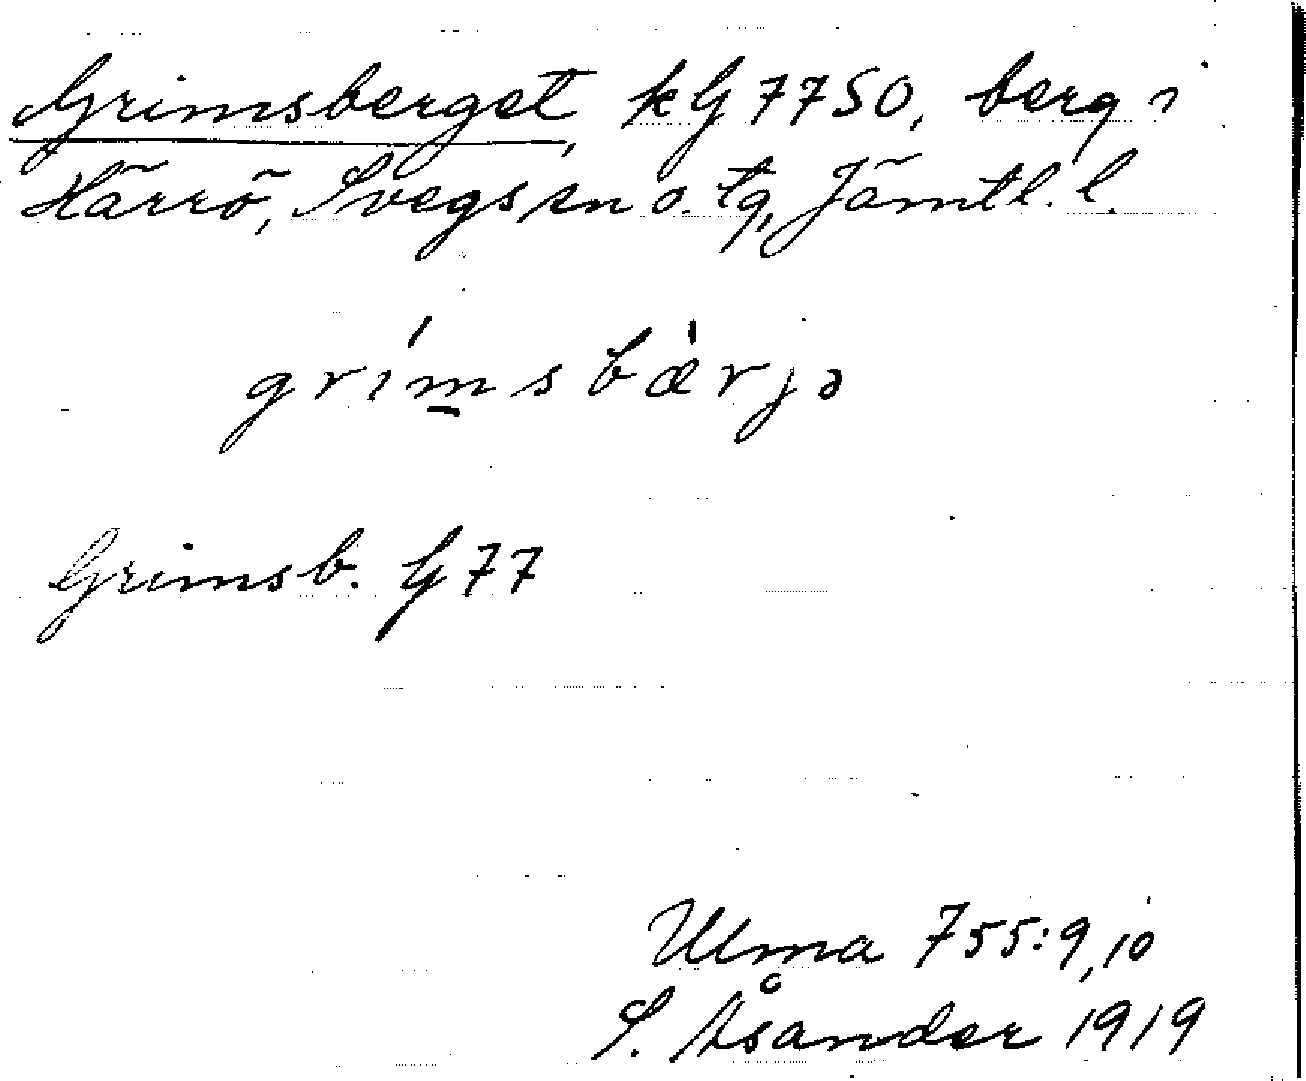 Grimsberget, kG 7750, berg i
Härrö, Svegs sn o. tg, Jämtl. l.
grímsbàrjə
Grimsb. G 77
Ulma 755:9,10
S. Åsander 1919